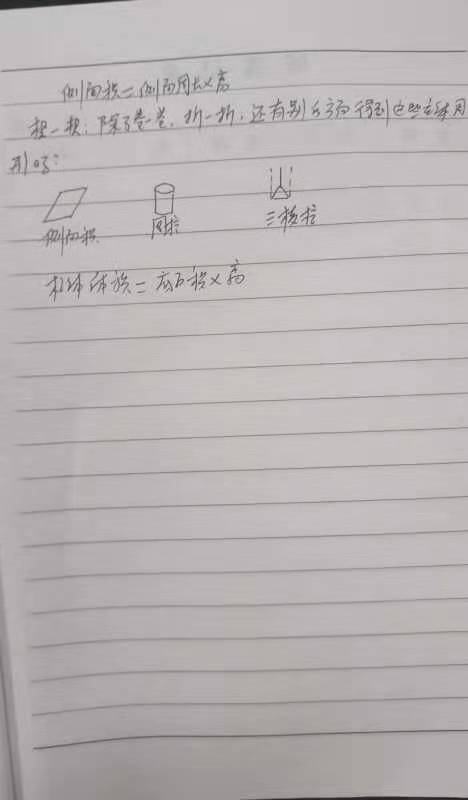 侧面积=侧面周长×高
想一想:除了卷一卷,折一折,还有别的方法得到这些立体图
形吗?
侧面积 圆柱 三棱柱
柱体体积=底面积×高